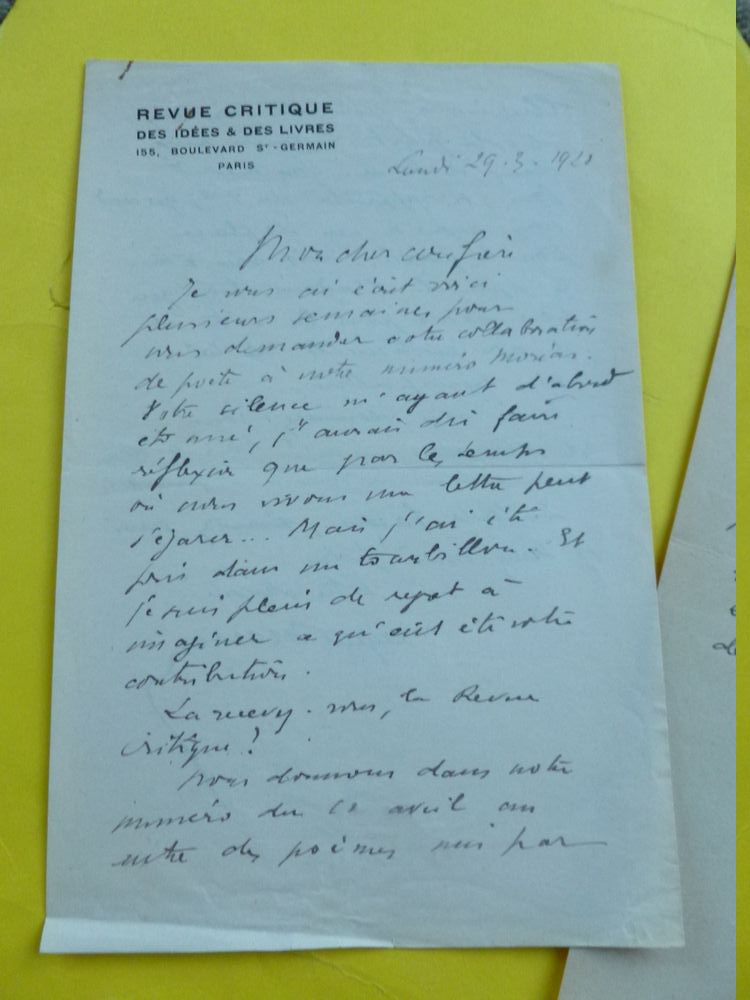 REVUE CRITIQUE
DES IDÉES & DES LIVRES
155, BOULEVARD St-GERMAIN
PARIS
Lundi 29.3.1920
Mon cher confrère
Je vous ai écrit voici
plusieurs semaines pour
vous demander votre collaboration
de poète à notre numéro Moréas.
Votre silence m'ayant d'abord
étonné, j'aurais dû faire
réflexion que par le temps
où nous vivons une lettre peut
s'égarer... Mais j'ai été
pris dans un tourbillon. Et
je suis plein de regret à
imaginer ce qu'eût été votre
contribution.
La recevez-vous, la Revue
Critique ?
Nous donnons dans notre
numéro du avril un
des poèmes par